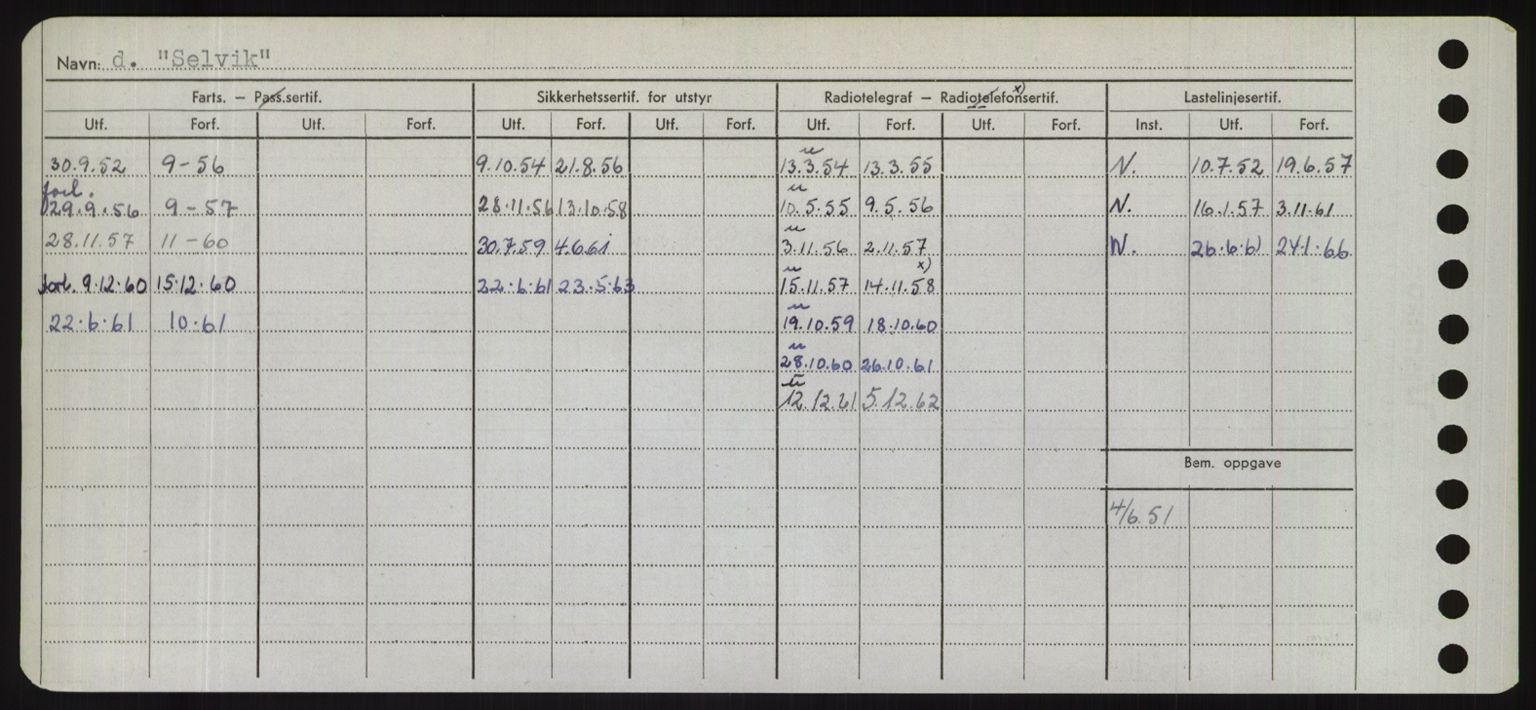 Navn: d. "Selvik"
Farts. — Pass.sertif. Sikkerhetssertif. for utstyr Radiotelegraf — Radiotelefonsertif. x) Lastelinjesertif.
Utf. Forf. Utf. Forf. Utf. Forf. Utf. Forf. Utf. Forf. Utf. Forf. Inst. Utf. Forf.
30.9.52 9-56 9.10.54 21.8.56 u 13.3.54 13.3.55 N. 10.7.52 19.6.57
forl. 29.9.56 9-57 28.11.56 13.10.58 u 10.5.55 9.5.56 N. 16.1.57 3.11.61
28.11.57 11-60 30.7.59 4.6.61 u 3.11.56 2.11.57 N. 26.6.61 24.1.66
forl. 9.12.60 15.12.60 22.6.61 23.5.63 u 15.11.57 14.11.58 x)
22.6.61 10.61 u 19.10.59 18.10.60
u 28.10.60 26.10.61
u 12.12.61 5.12.62
Bem. oppgave
4/6.51